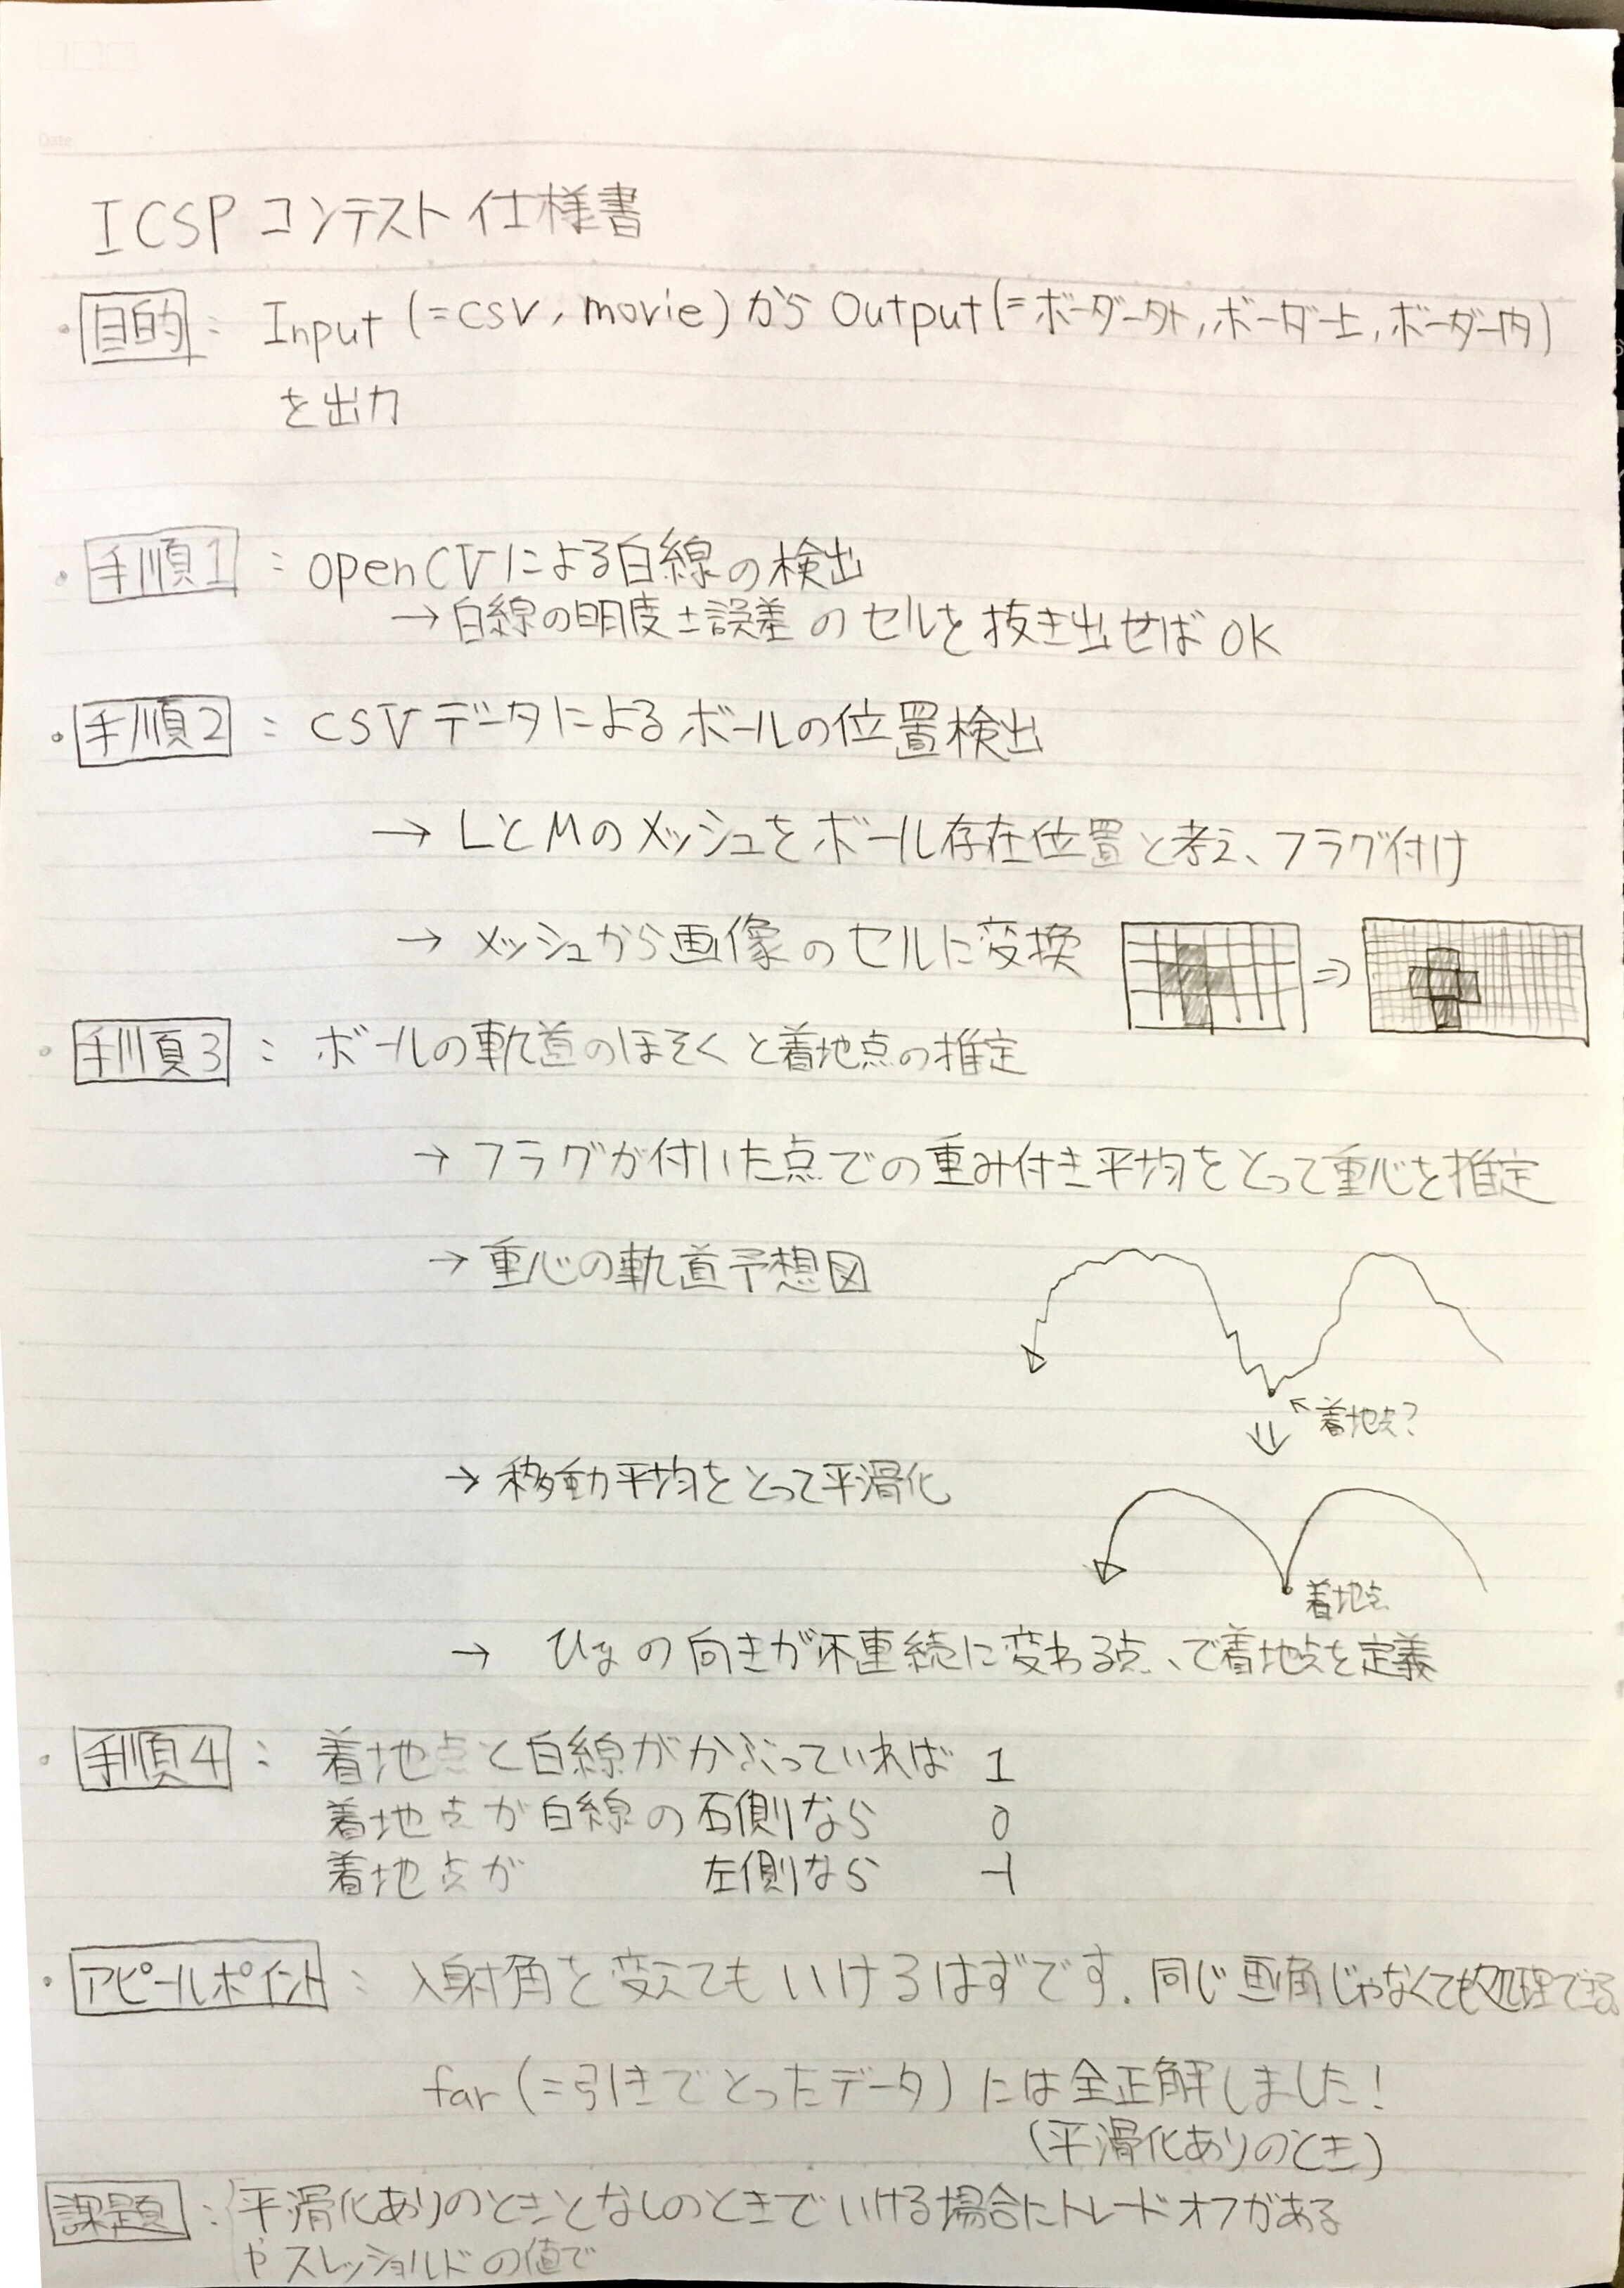 Date
ICSP コンテスト 仕様書
・目的：Input (=csv, movie) から Output (=ボーダー外, ボーダー上, ボーダー内)
を出力
・手順1：openCVによる白線の検出
→白線の明度±誤差のセルを抜き出せばOK
・手順2：CSVデータによるボールの位置検出
→LとMのメッシュをボール存在位置と考え、フラグ付け
→メッシュから画像のセルに変換 ⇒
・手順3：ボールの軌道のほそくと着地点の推定
→フラグが付いた点での重み付き平均をとって重心を推定
→重心の軌道予想図
←着地点?
⇓
→移動平均をとって平滑化
着地点
→ の向きが不連続に変わる点、で着地点を定義
・手順4：着地点と白線がかぶっていれば 1
着地点が白線の右側なら 0
着地点が 左側なら -1
・アピールポイント：入射角を変えてもいけるはずです. 同じ画角じゃなくても処理できる
far (=引きでとったデータ) には全正解しました!
(平滑化ありのとき)
課題：平滑化ありのときとなしのときでいける場合にトレードオフがある
やスレッショルドの値で